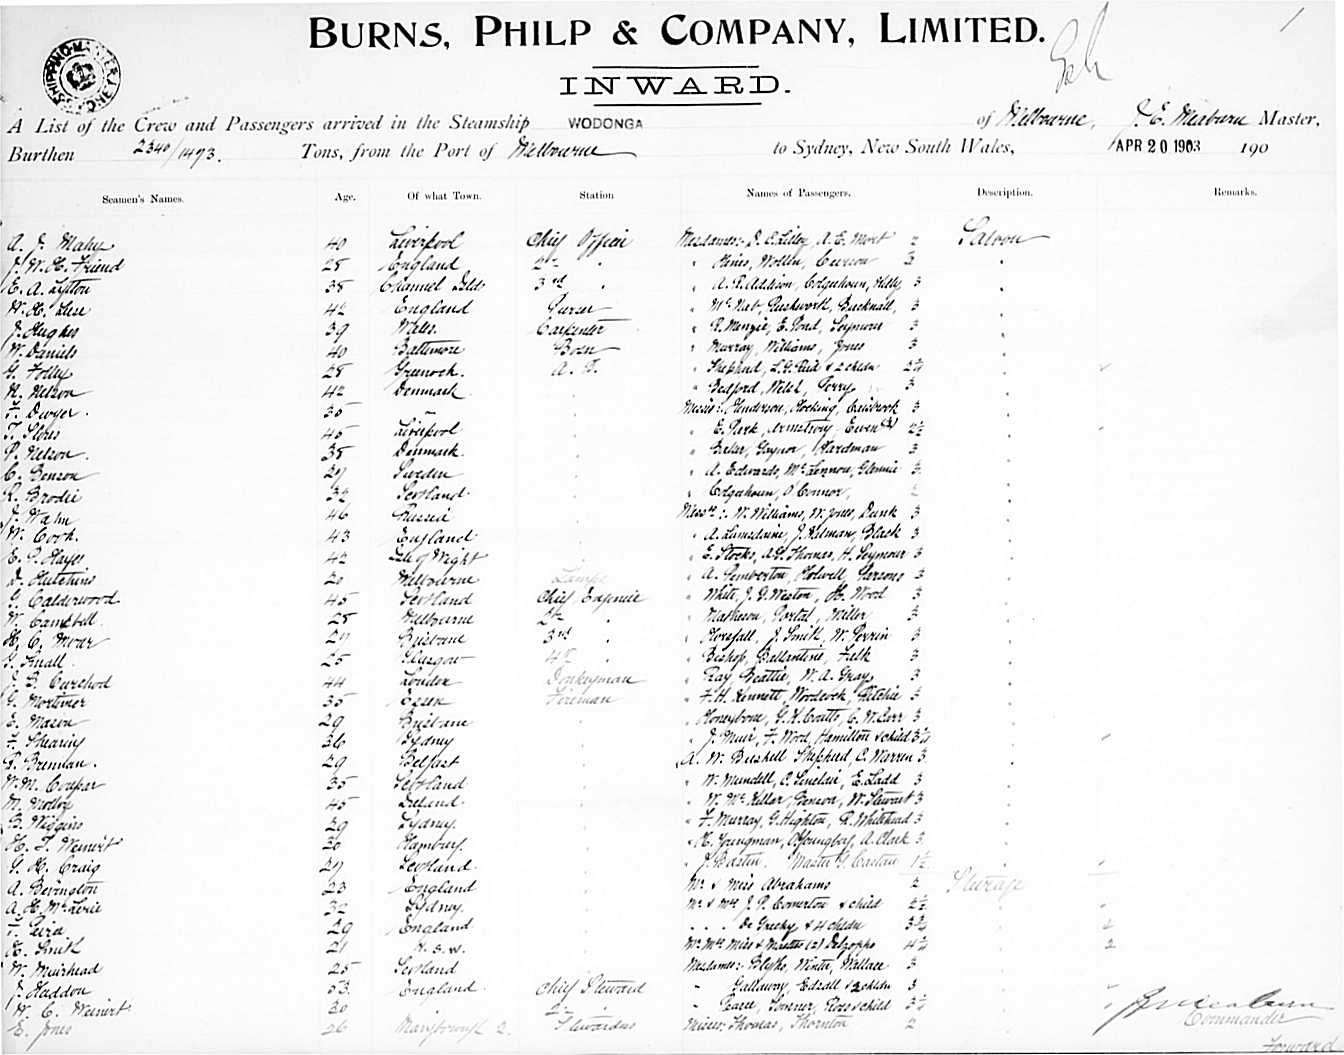 BURNS, PHILP & COMPANY, LIMITED.
INWARD.
A List of the Crew and Passengers arrived in the Steamship WODONGA of Melbourne, J. E. Meaburn Master,
Burthen 2340/1473. Tons, from the Port of Melbourne to Sydney, New South Wales, APR 20 1903 190
Seamen's Names. Age. Of what Town. Station Names of Passengers. Description. Remarks.
A. J. Mahy 40 Liverpool Chief Officer Mesdames:- D. C. Lilley, A. E. Mort 2 Saloon
J. W. H. Friend 28 England 2nd " " Hines, Wollen, Curzon 3
E. A. Lytton 38 Channel Islds 3rd " " A. R. Addison, Colquhoun, Hills 3
W. H. Luse 42 England Purser " McNab, Rushworth, Bucknall, 3
J. Hughes 39 Wales. Carpenter " R. Menzie, E. Pond, Seymour 3
W. Daniels 40 Baltimore Bosn " Murray, Williams, Jones 3
G. Folly 28 Greenock. A. B. " Shepherd, L. G. Reid & 2 childn
N. Nelson 42 Denmark " Bedford, Welsh, Perry 3
F. Dwyer. 35 " Misses:- Henderson, Hocking, Carisbrook 3
T. Flores 45 Liverpool " E. Park, Armstrong, Ewen 2½
P. Nelson. 38 Denmark. " Baker, Gaynor, Hardman 3
C. Benson 29 Sweden " A. Edwards, McLennon, Glennie 3
R. Brodie 32 Scotland " Colquhoun, O'Connor, 2
J. Wahn 46 Russia Messrs:- W. Williams, W. Jones, Dunk 3
W. Cook. 43 England " A. Lumsdaine, J. Hilman, Black 3
E. P. Hayes 42 Isle of Wight " E. Stocks, A. G. Thomas, H. Seymour 3
D. Hutchins 20 Melbourne Lamps " A. Pemberton, Holwell, Parsons 3
G. Calderwood 45 Scotland Chief Engineer " White, J. D. Weston, H. Wood 3
W. Campbell. 28 Melbourne 2nd " " Matheson, Portal, Miller 3
H. C. Moar 27 Brisbane 3rd " " Horsfall, J. Smith, W. Perrin 3
G. Small. 25 Glasgow 4th " " Bishop, Ballantine, Falk 3
J. B. Curchod 44 London Donkeyman " Ray, Beattie, W. A. Gray 3
G. Mortimer 35 Essex Fireman " F. H. Kennett, Woodcock, Ritchie 3
E. Mason 29 Brisbane " Honeybone, G. H. Coutts, C. W. Carr 3
F. Shearing 36 Sydney " J. Muir, F. Wood, Hamilton & child
P. Brennan. 29 Belfast " A. W. Bushell, Shepherd, C. Warren 3
W. M. Cooper 35 Scotland " W. Mundell, C. Sinclair, E. Ladd 3
M. Molloy 45 Ireland. " W. McKellar, Benson, W. Stewart 3
B. Wiggins 29 Sydney. " F. Murray, G. Highton, R. Whitehead 3
H. F. Weinert 30 Hamburg. " H. Youngman, O. Youngberg, A. Clark 3
G. H. Craig 27 Scotland. " J. Bastin, Master G. Carter 1½
A. Bevington 23 England Mr & Miss Abrahams 2 Steerage
A. H. McLerie 32 Sydney. Mr & Mrs J. P. Comerton & child 2½
F. Reird 29 England " " De Grecky & 4 childn
H. Smith 21 N. S. W. Mr Mrs Miss & Masters (2) Delzoppo
W. Muirhead 25 Scotland Mesdames:- Blythe, Winter, Wallace 3
J. Haddon 53. England Chief Steward " Gallaway, Edsall & 2 childn 3
W. C. Weinert 30 " 2nd " " Pearce, Sommer, Ross & child
E. Jones 26 Maryborough Q. Stewardess Misses:- Thomas, Thornton 2
J E Meaburn
Commander
Forward